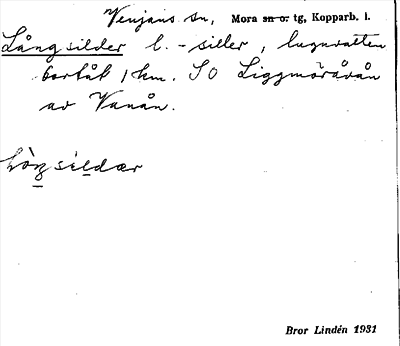 Venjans sn, Mora sn o. tg, Kopparb. l.
Långsilder l. -siller, lugnvatten
bortåt 1 km. SO Liggmöråvån
av Vanån.
Bror Lindén 1931